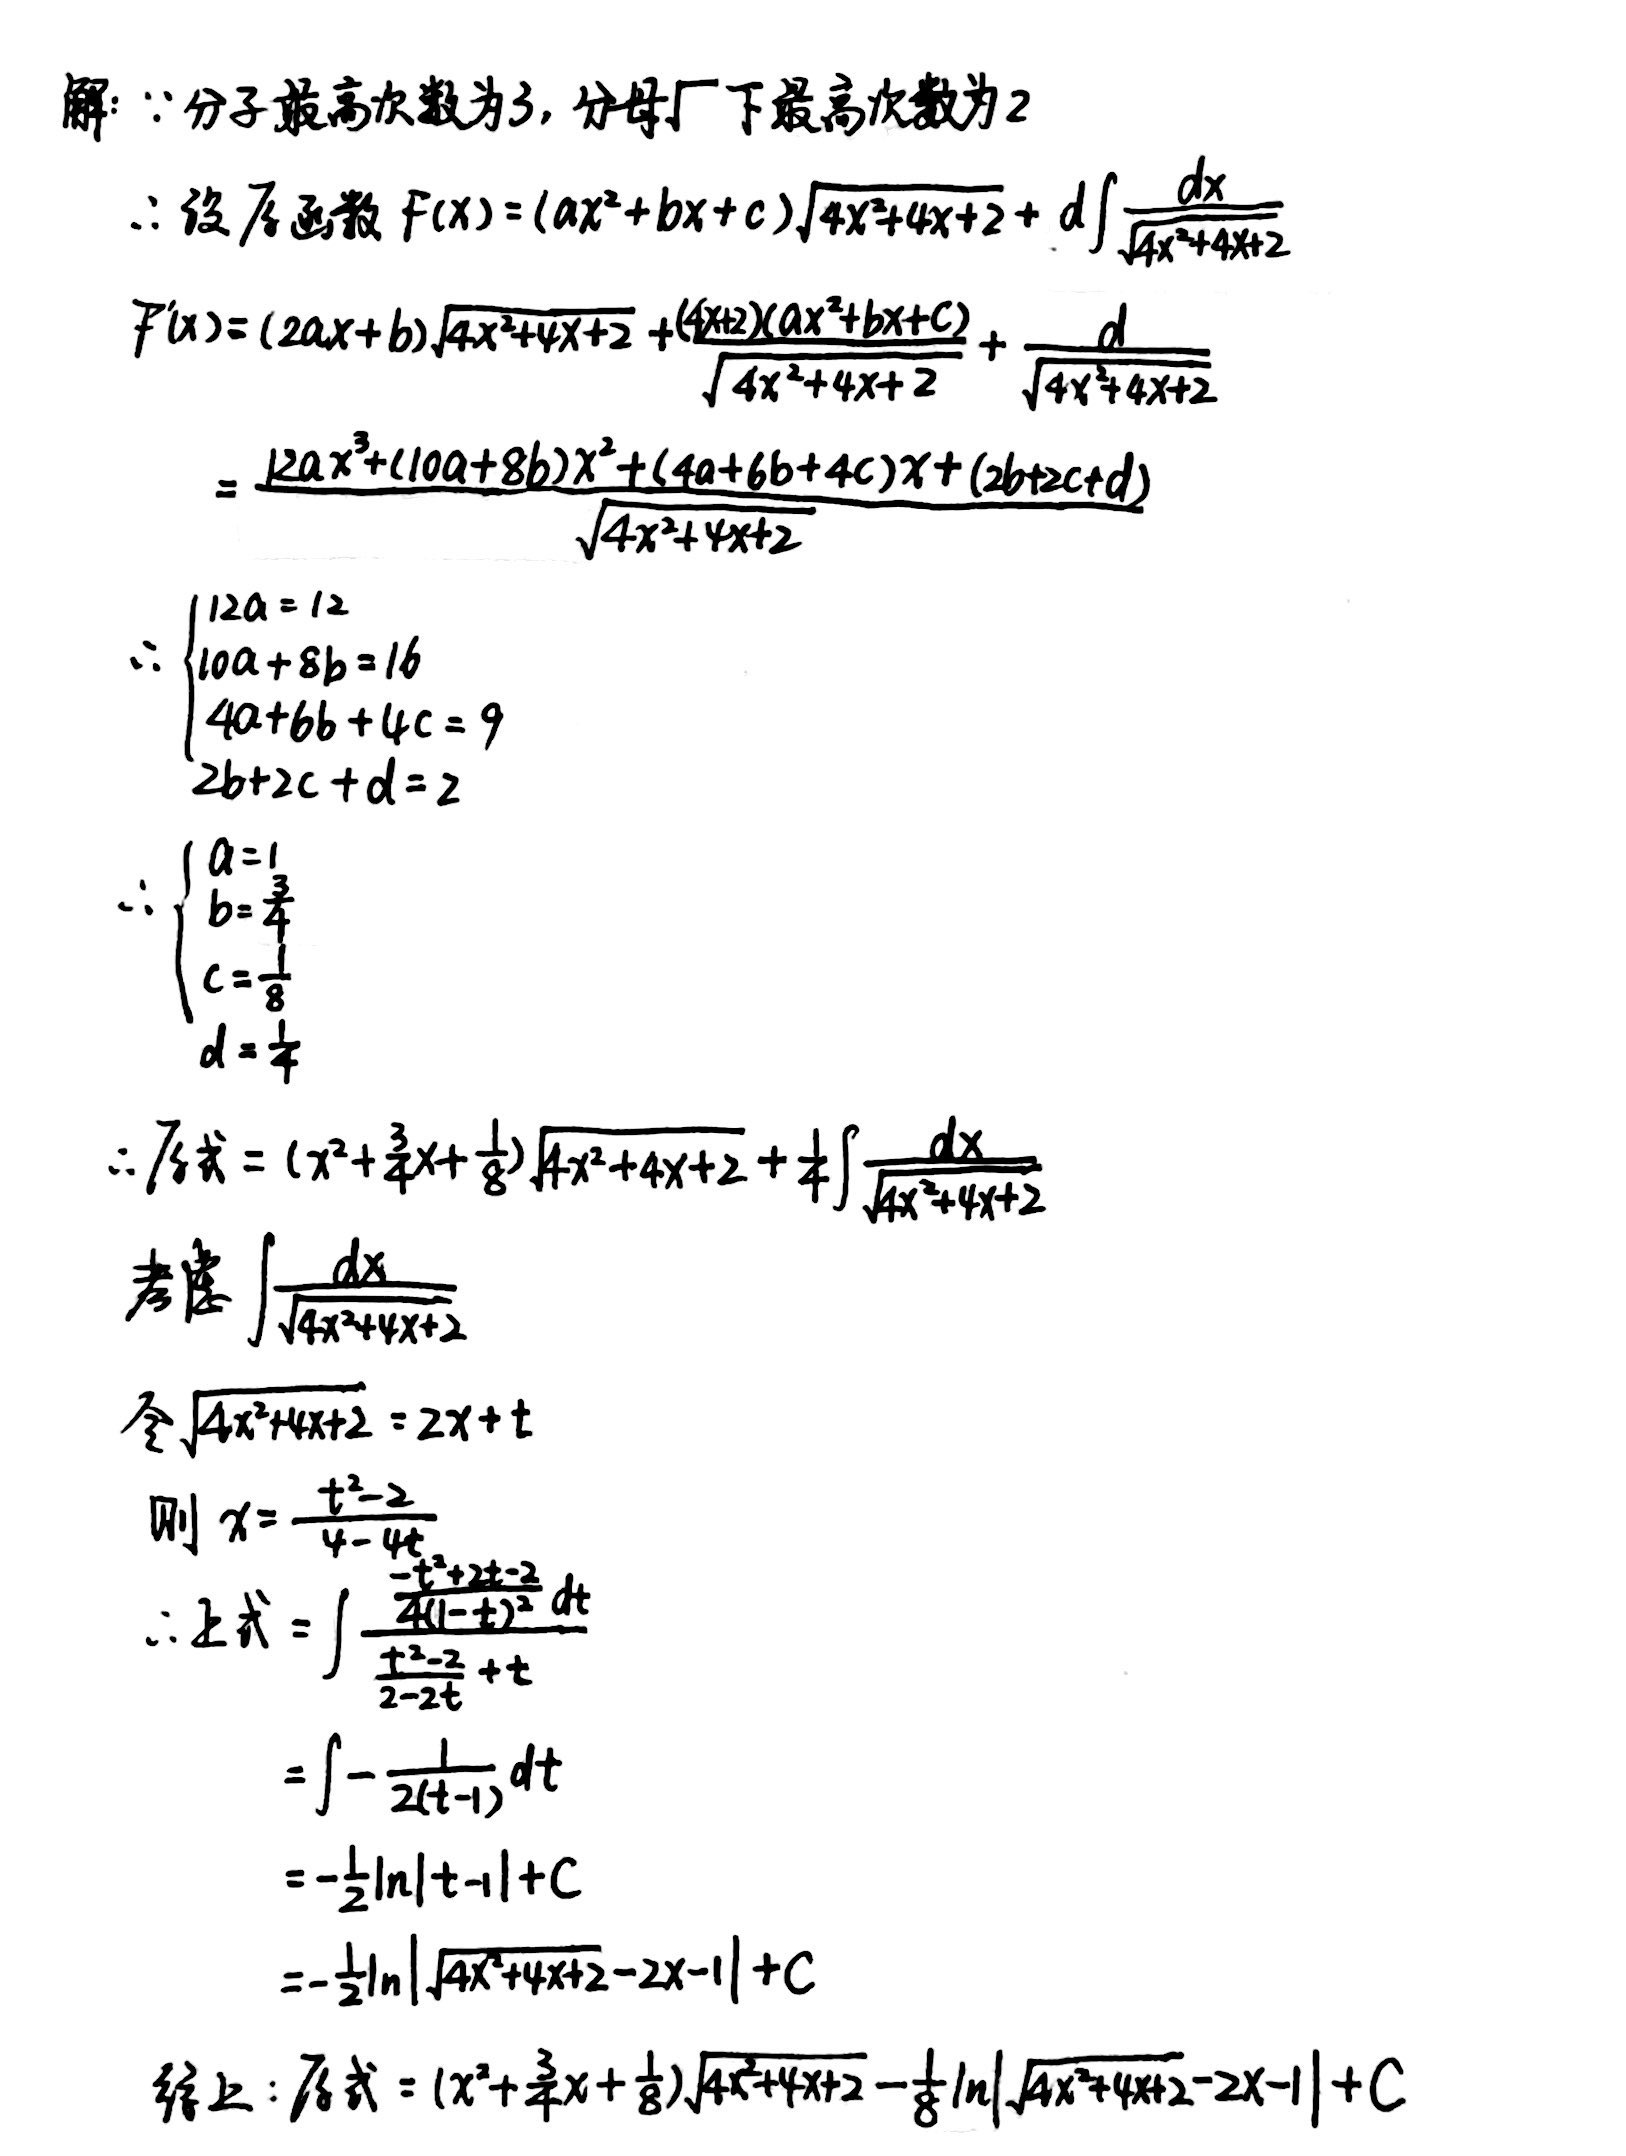 解：∵分子最高次数为3，分母√ 下最高次数为2
∴设原函数 F(x)=(ax²+bx+c)√(4x²+4x+2) + d∫dx/√(4x²+4x+2)
F'(x)=(2ax+b)√(4x²+4x+2) + (4x+2)(ax²+bx+c)/√(4x²+4x+2) + d/√(4x²+4x+2)
= [12ax³+(10a+8b)x²+(4a+6b+4c)x+(2b+2c+d)]/√(4x²+4x+2)
∴ { 12a=12
10a+8b=16
4a+6b+4c=9
2b+2c+d=2
∴ { a=1
b=3/4
c=1/8
d=1/4
∴原式=(x²+3/4x+1/8)√(4x²+4x+2) + 1/4∫dx/√(4x²+4x+2)
考虑 ∫dx/√(4x²+4x+2)
令√(4x²+4x+2) = 2x+t
则 x=(t²-2)/(4-4t)
∴上式 = ∫ [(-t²+2t-2)/(4(1-t)²) dt]/[(t²-2)/(2-2t) + t]
=∫-1/(2(t-1)) dt
=-1/2ln|t-1|+C
=-1/2ln|√(4x²+4x+2)-2x-1|+C
综上：原式=(x²+3/4x+1/8)√(4x²+4x+2)-1/8ln|√(4x²+4x+2)-2x-1|+C